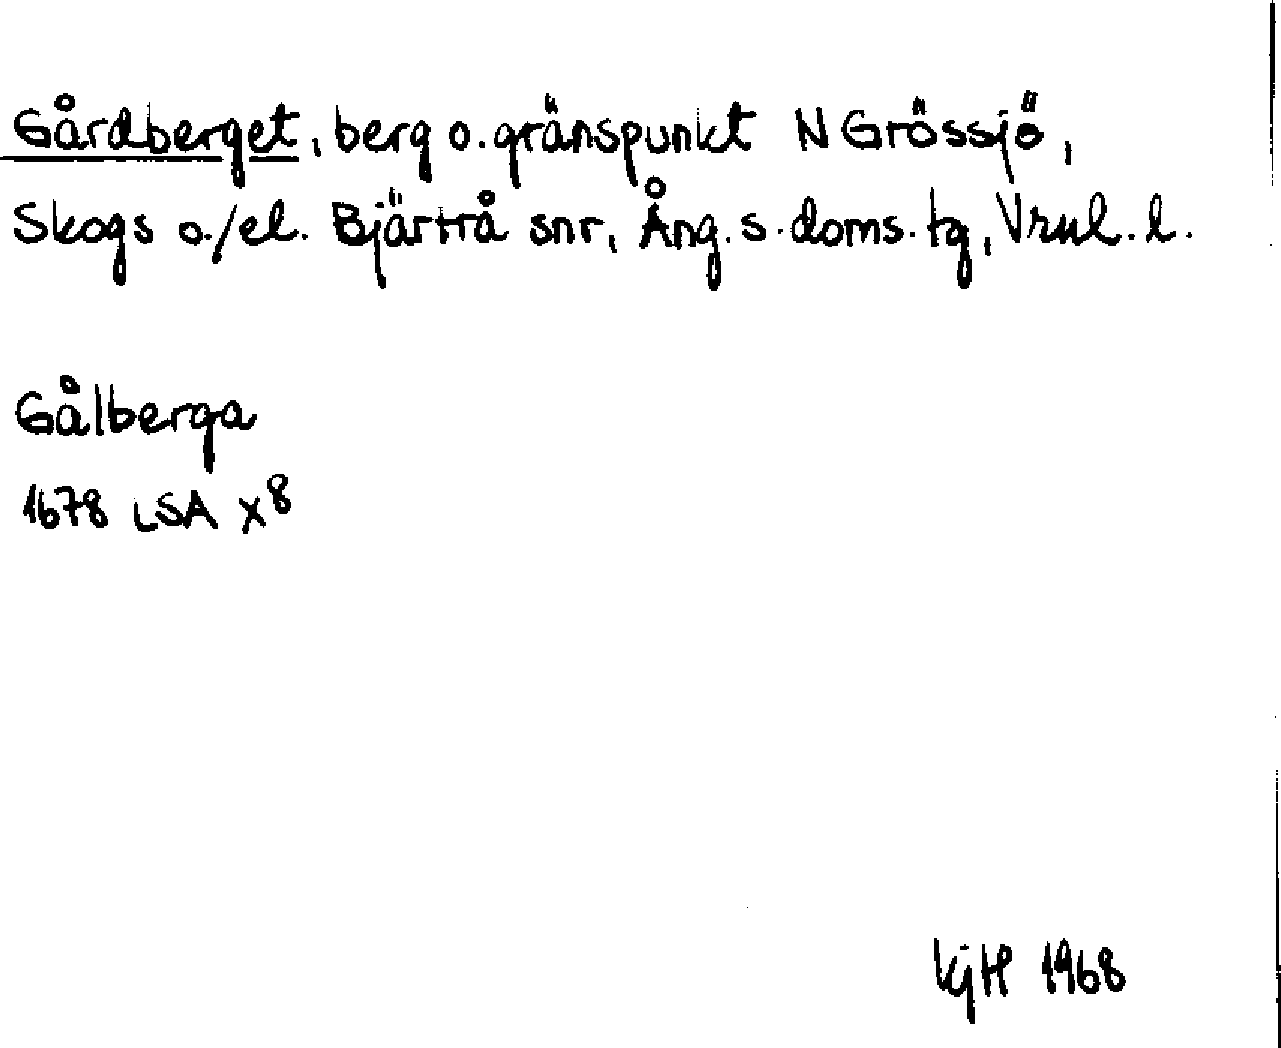 Gårdberget, berg o. gränspunkt N Grössjö,
Skogs o./el. Bjärtrå snr, Ång. s. doms. tg, Vrnl. l.
Gålberga
1678 LSA X8
KjH 1968